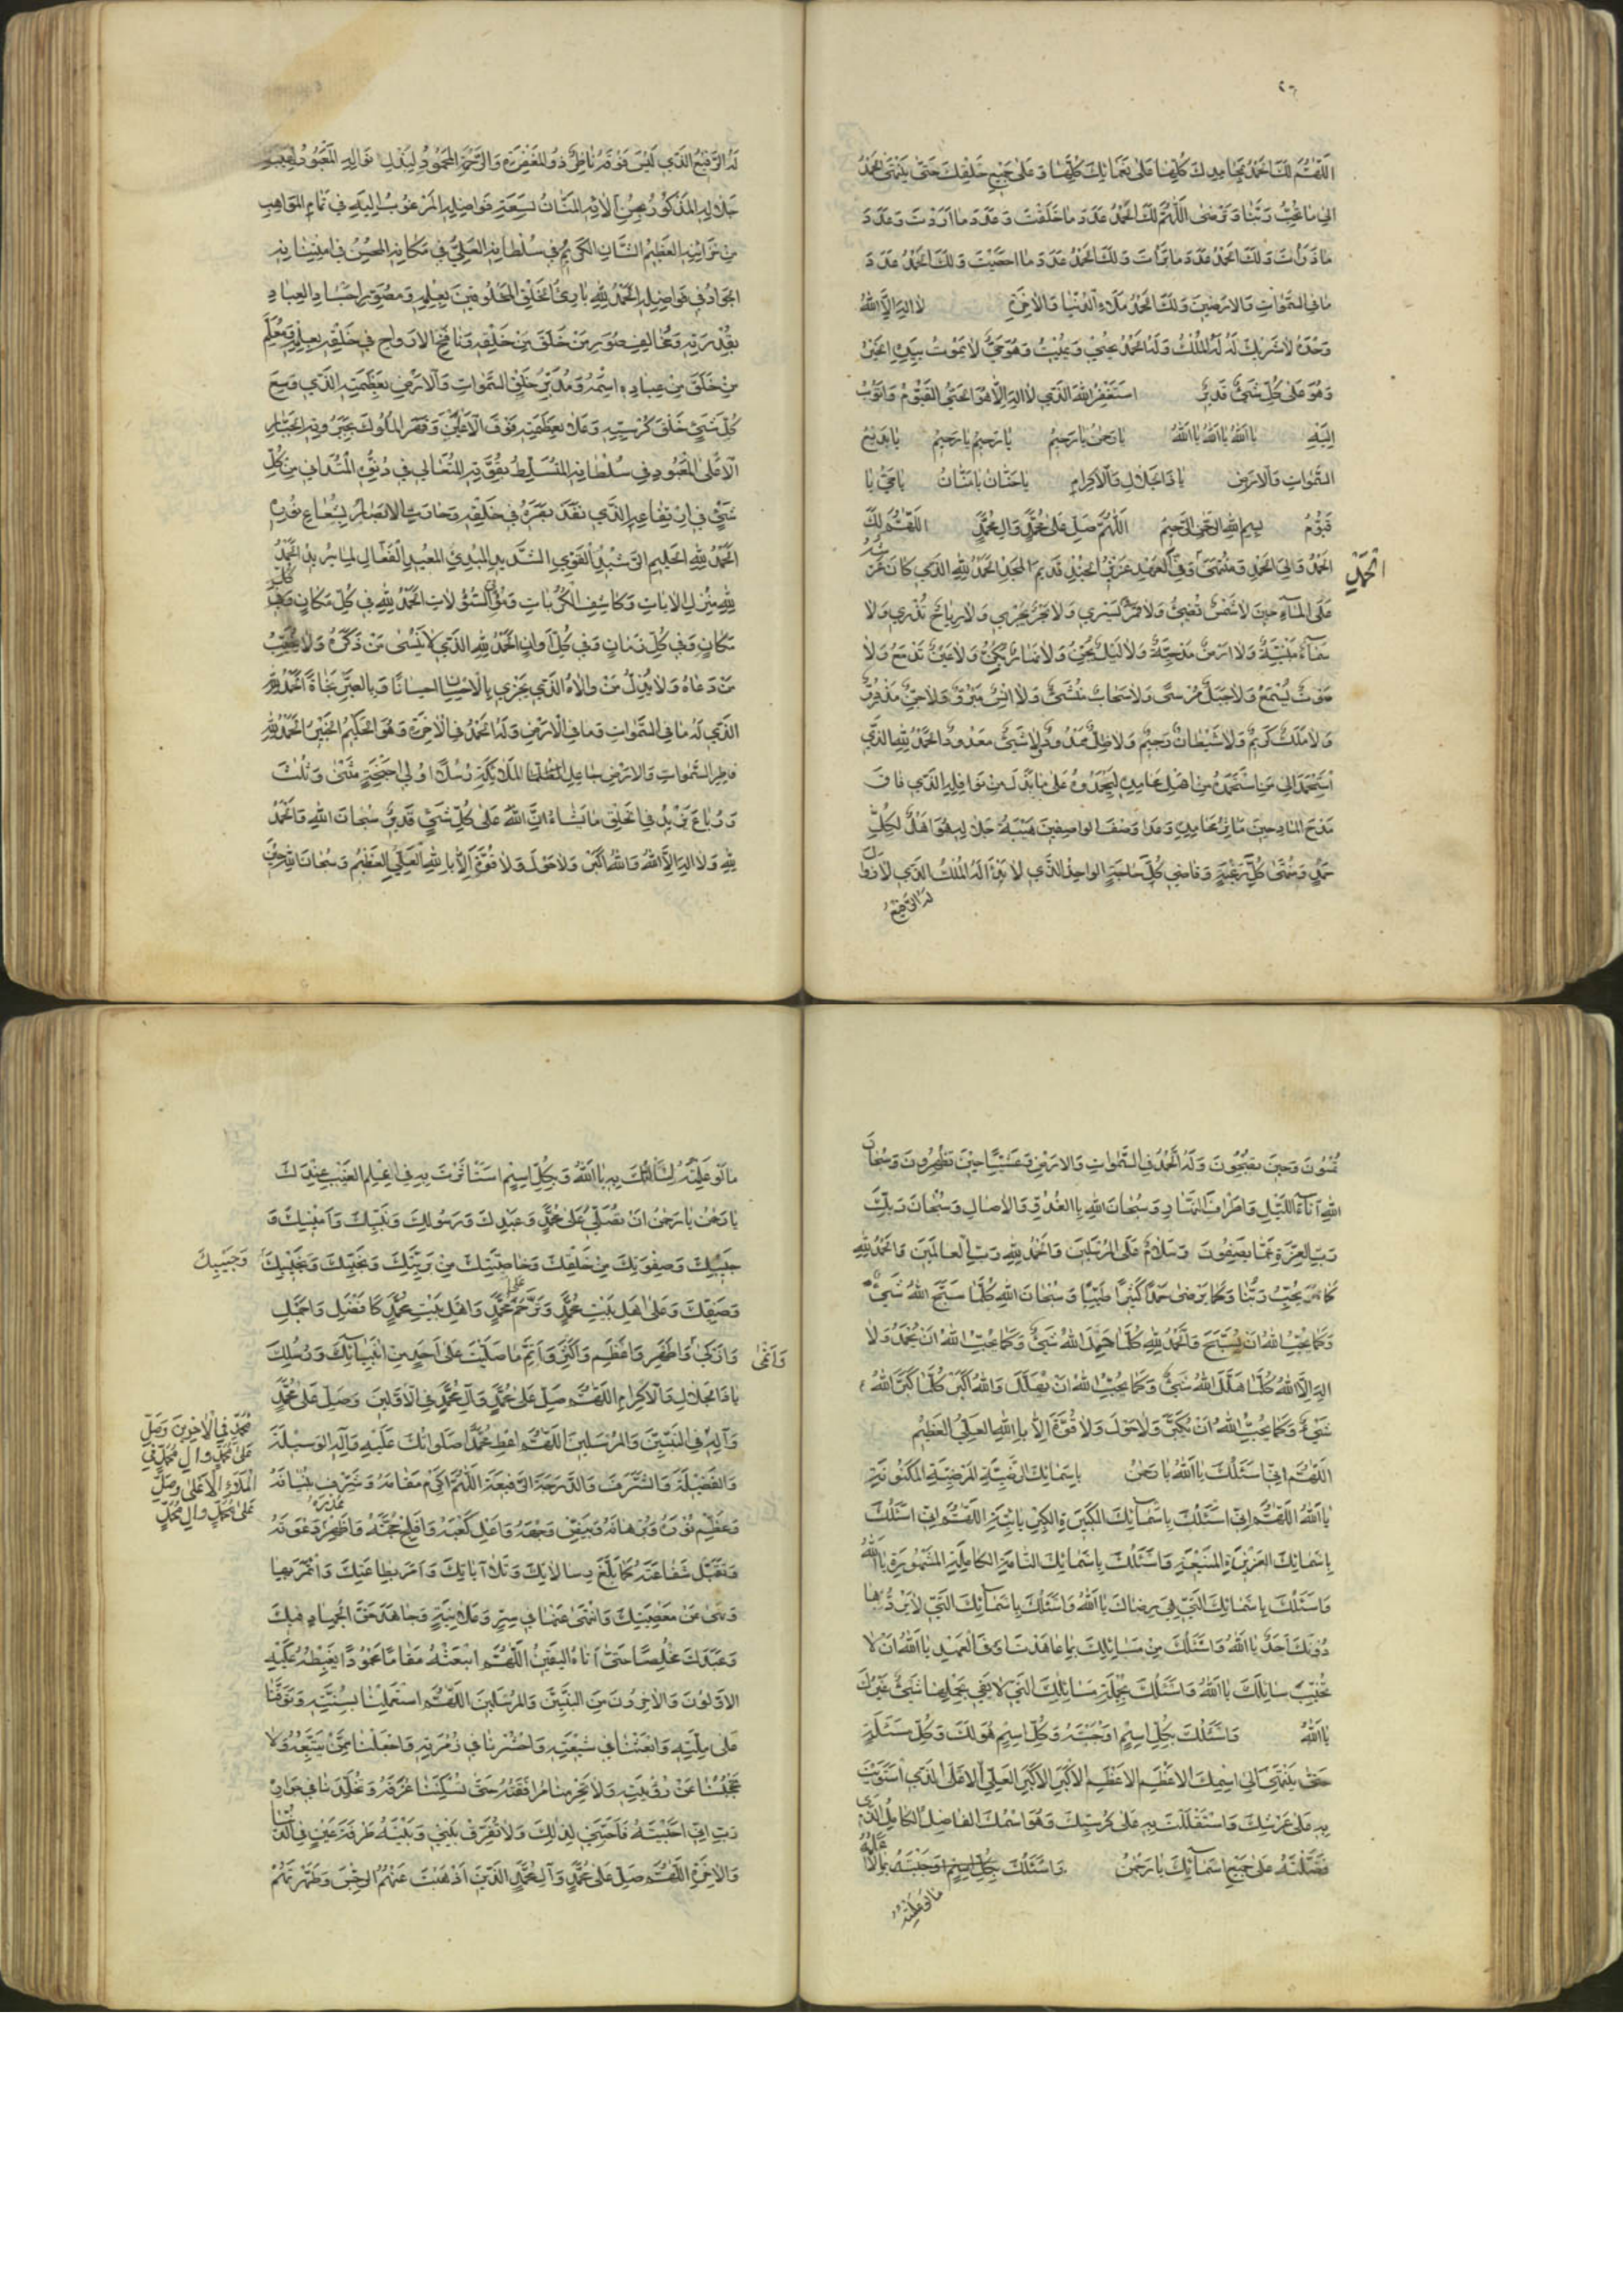 ٢٠
اَللّٰهُمَّ لَكَ الْحَمْدُ بِمَحامِدِكَ كُلِّها عَلى نَعْمائِكَ كُلِّها وَعَلى جَميعِ خَلْقِكَ حَتّى يَنْتَهِيَ الْحَمْدُ
اِلى ما تُحِبُّ رَبَّنا وَتَرْضى اَللّٰهُمَّ لَكَ الْحَمْدُ عَدَدَ ما خَلَقْتَ وَعَدَدَ ما اَرَدْتَ وَعَدَدَ
ما ذَرَأْتَ وَلَكَ الْحَمْدُ عَدَدَ ما بَرَأْتَ وَلَكَ الْحَمْدُ عَدَدَ ما اَحْصَيْتَ وَلَكَ الْحَمْدُ عَدَدَ
ما فِي السَّمٰواتِ وَالْاَرَضينَ وَلَكَ الْحَمْدُ مِلَاءَ الدُّنْيا وَالْاٰخِرَةِ لا اِلٰهَ اِلَّا اللهُ
وَحْدَهُ لا شَريكَ لَهُ لَهُ الْمُلْكُ وَلَهُ الْحَمْدُ يُحْيي وَيُميتُ وَهُوَ حَيٌّ لا يَمُوتُ بِيَدِهِ الْخَيْرُ
وَهُوَ عَلى كُلِّ شَيْءٍ قَديرٌ اَسْتَغْفِرُ اللهَ الَّذي لا اِلٰهَ اِلّا هُوَ الْحَيُّ الْقَيُّومُ وَاَتُوبُ
اِلَيْهِ يا اَللهُ يا اَللهُ يا اَللهُ يا رَحْمٰنُ يا رَحيمُ يا رَحيمُ يا رَحيمُ يا بَديعَ
السَّمٰواتِ وَالْاَرْضِ يا ذَا الْجَلالِ وَالْاِكْرامِ يا حَنّانُ يا مَنّانُ يا حَيُّ يا
قَيُّومُ بِسْمِ اللهِ الرَّحْمٰنِ الرَّحيمِ اَللّٰهُمَّ صَلِّ عَلى مُحَمَّدٍ وَالِ مُحَمَّدٍ اَللّٰهُمَّ لَكَ
الْحَمْدُ وَلِيَ الْحَمْدِ وَمُنْتَهَى وَفِيَّ الْعَهْدِ عَزيزَ الْجُنْدِ قَديمَ الْمَجْدِ الْحَمْدُ لِلهِ الَّذي كانَ عَرْشُهُ
الْحَمْدِ
عَلَى الْمٰاءِ حينَ لا شَمْسٌ تُضيءُ وَلا قَمَرٌ يَسْري وَلا بَحْرٌ يَجْري وَلا رِياحٌ تَذْري وَلا
سَمٰاءٌ مَبْنِيَّةٌ وَلا اَرْضٌ مَدْحِيَّةٌ وَلا لَيْلٌ يُجِنُّ وَلا نَهارٌ يُكِنُّ وَلا عَيْنٌ تَدْمَعُ وَلا
صَوْتٌ يُسْمَعُ وَلا جَبَلٌ مُرْسىً وَلا سَحابٌ مُنْشَىءٌ وَلا اِنْسٌ مَبْرُوٌّ وَلا جِنٌّ مَذْرُوٌّ
وَلا مَلَكٌ كَريمٌ وَلا شَيْطانٌ رَجيمٌ وَلا ظِلٌّ مَمْدُودٌ وَلا شَيْءٌ مَعْدُودٌ الْحَمْدُ لِلهِ الَّذي
اسْتَحْمَدَ اِلى مَنِ اسْتَحْمَدَهُ مِنْ اَهْلِ مَحامِدِهِ لِيَحْمَدُوهُ عَلى ما بَذَلَ مِنْ نَوافِلِهِ الَّذي فاقَ
مَدْحَ الْمادِحينَ مَاٰثِرُ مَحامِدِهِ وَعَدا وَصْفَ الْواصِفينَ هَيْبَةُ جَلالِهِ هُوَ اَهْلٌ لِكُلِّ
حَمْدٍ وَمُنْتَهى كُلِّ رَغْبَةٍ وَقاضي كُلِّ حاجَةٍ الْواحِدُ الَّذي لا بَدْءَ لَهُ الْمَلِكُ الَّذي لا زَوالَ
لَهُ الرَّفيعُ
لَهُ الرَّفيعُ الَّذي لَيْسَ فَوْقَهُ ناظِرٌ ذُو الْمَغْفِرَةِ وَالرَّحْمَةِ الْمَحْمُودُ لِبَذْلِ نَوالِهِ الْمَعْبُودُ لِهَيْبَةِ
جَلالِهِ الْمَذْكُورُ بِحُسْنِ اٰلائِهِ الْمَنّانُ بِسَعَةِ فَواضِلِهِ الْمَرْغُوبُ اِلَيْهِ في تَمامِ الْمَواهِبِ
مِنْ خَزائِنِهِ الْعَظيمُ الشَّانِ الْكَريمُ في سُلْطانِهِ الْعَلِيُّ في مَكانِهِ الْمُحْسِنُ فِي امْتِنانِهِ
الْجَوادُ في فَواضِلِهِ الْحَمْدُ لِلهِ بارِئِ الْخَلْقِ الْمَخْلُوقينَ بِعِلْمِهِ وَمُصَوِّرِ اَجْسادِ الْعِبادِ
بِقُدْرَتِهِ وَمُخالِفِ صُوَرِ مَنْ خَلَقَ مِنْ خَلْقِهِ وَنافِخِ الْاَرْواحِ في خَلْقِهِ بِعِلْمِهِ وَمُعَلِّمِ
مَنْ خَلَقَ مِنْ عِبادِهِ اسْمَهُ وَمُدَبِّرِ خَلْقِ السَّمٰواتِ وَالْاَرْضِ بِعَظَمَتِهِ الَّذي وَسِعَ
كُلَّ شَيْءٍ خَلْقُ كُرْسِيِّهِ وَعَلا بِعَظَمَتِهِ فَوْقَ الْاَعْلَيْنَ وَقَهَرَ الْمُلُوكَ بِجَبَرُوتِهِ الْجَبّارِ
الْاَعْلَى الْمَعْبُودِ في سُلْطانِهِ الْمُتَسَلِّطُ بِقُوَّتِهِ الْمُتَعالي في دُنُوِّهِ الْمُتَداني مِنْ كُلِّ
شَيْءٍ فِي ارْتِفاعِهِ الَّذي نَفَذَ بَصَرُهُ في خَلْقِهِ وَحارَتِ الْاَبْصارُ بِشُعاعِ نُورِهِ
الْحَمْدُ لِلهِ الْحَليمِ الرَّشيدِ الْقَوِيِّ الشَّديدِ الْمُبْدِئِ الْمُعيدِ الْفَعّالِ لِما يُريدُ الْحَمْدُ
لِلهِ مُنْزِلِ الْاٰياتِ وَكاشِفِ الْكُرُباتِ وَمُؤْتِي السُّؤُلاتِ الْحَمْدُ لِلهِ في كُلِّ مَكانٍ وَفَوْقَ كُلِّ
مَكانٍ وَفي كُلِّ زَمانٍ وَفي كُلِّ اَوانٍ الْحَمْدُ لِلهِ الَّذي لا يَنْسى مَنْ ذَكَرَهُ وَلا يَخيبُ
مَنْ دَعاهُ وَلا يُذِلُّ مَنْ والاهُ الَّذي يَجْزي بِالْاِحْسانِ اِحْسانًا وَبِالصَّبْرِ نَجاةً الْحَمْدُ لِلهِ
الَّذي لَهُ ما فِي السَّمٰواتِ وَما فِي الْاَرْضِ وَلَهُ الْحَمْدُ فِي الْاٰخِرَةِ وَهُوَ الْحَكيمُ الْخَبيرُ الْحَمْدُ لِلهِ
فاطِرِ السَّمٰواتِ وَالْاَرْضِ جاعِلِ الْمَلائِكَةِ رُسُلًا اُولي اَجْنِحَةٍ مَثْنى وَثُلٰثَ
وَرُباعَ يَزيدُ فِي الْخَلْقِ ما يَشاءُ اِنَّ اللهَ عَلى كُلِّ شَيْءٍ قَديرٌ سُبْحانَ اللهِ وَالْحَمْدُ
لِلهِ وَلا اِلٰهَ اِلَّا اللهُ وَاللهُ اَكْبَرُ وَلا حَوْلَ وَلا قُوَّةَ اِلّا بِاللهِ الْعَلِيِّ الْعَظيمِ وَسُبْحانَ اللهِ حينَ
تُمْسُونَ وَحينَ تُصْبِحُونَ وَلَهُ الْحَمْدُ فِي السَّمٰواتِ وَالْاَرْضِ وَعَشِيًّا وَحينَ تُظْهِرُونَ وَسُبْحانَ
اللهِ اٰناءَ اللَّيْلِ وَاَطْرافَ النَّهارِ وَسُبْحانَ اللهِ بِالْغُدُوِّ وَالْاٰصالِ وَسُبْحانَ رَبِّكَ
رَبِّ الْعِزَّةِ عَمّا يَصِفُونَ وَسَلامٌ عَلَى الْمُرْسَلينَ وَالْحَمْدُ لِلهِ رَبِّ الْعالَمينَ وَالْحَمْدُ لِلهِ
كَما يُحِبُّ رَبُّنا وَكَما يَرْضى حَمْدًا كَثيرًا طَيِّبًا وَسُبْحانَ اللهِ كُلَّما سَبَّحَ اللهَ شَيْءٌ
وَكَما يُحِبُّ اللهُ اَنْ يُسَبَّحَ وَالْحَمْدُ لِلهِ كُلَّما حَمِدَ اللهَ شَيْءٌ وَكَما يُحِبُّ اللهُ اَنْ يُحْمَدَ وَلا
اِلٰهَ اِلَّا اللهُ كُلَّما هَلَّلَ اللهَ شَيْءٌ وَكَما يُحِبُّ اللهُ اَنْ يُهَلَّلَ وَاللهُ اَكْبَرُ كُلَّما كَبَّرَ اللهَ
شَيْءٌ وَكَما يُحِبُّ اللهُ اَنْ يُكَبَّرَ وَلا حَوْلَ وَلا قُوَّةَ اِلّا بِاللهِ الْعَلِيِّ الْعَظيمِ
اَللّٰهُمَّ اِنّي اَسْئَلُكَ يا اَللهُ يا رَحْمٰنُ بِاَسْمائِكَ الرَّضِيَّةِ الْمَرْضِيَّةِ الْمَكْنُونَةِ
يا اَللهُ اَللّٰهُمَّ اِنّي اَسْئَلُكَ بِاَسْمائِكَ الْكَبيرَةِ الْكِبْرِيائِيَّةِ اَللّٰهُمَّ اِنّي اَسْئَلُكَ
بِاَسْمائِكَ الْعَزيزَةِ الْمَنيعَةِ وَاَسْئَلُكَ بِاَسْمائِكَ التّامَّةِ الْكامِلَةِ الْمَشْهُورَةِ يا اَللهُ
وَاَسْئَلُكَ بِاَسْمائِكَ الَّتي هِيَ رِضاكَ يا اَللهُ وَاَسْئَلُكَ بِاَسْمائِكَ الَّتي لا يَرُدُّها
دُونَكَ اَحَدٌ يا اَللهُ وَاَسْئَلُكَ مِنْ مَسائِلِكَ بِما عاهَدْتَ اَوْفَى الْعَهْدِ يا اَللهُ اَنْ لا
تُخَيِّبَ سائِلَكَ يا اَللهُ وَاَسْئَلُكَ بِجُمْلَةِ مَسائِلِكَ الَّتي لا يَفي بِحَمْلِها شَيْءٌ غَيْرُكَ
يا اَللهُ وَاَسْئَلُكَ بِكُلِّ اسْمٍ اَوْجَبْتَهُ وَكُلِّ اسْمٍ هُوَ لَكَ وَكُلِّ مَسْئَلَةٍ
حَتّى يَنْتَهِيَ اِلَى اسْمِكَ الْاَعْظَمِ الْاَعْظَمِ الْاَكْبَرِ الْاَكْبَرِ الْعَلِيِّ الْاَعْلَى الَّذي اسْتَوَيْتَ
بِهِ عَلى عَرْشِكَ وَاسْتَقْلَلْتَ بِهِ عَلى كُرْسِيِّكَ وَهُوَ اسْمُكَ الْفاضِلُ الْكامِلُ الَّذي
فَضَّلْتَهُ عَلى جَميعِ اَسْمائِكَ يا رَحْمٰنُ وَاَسْئَلُكَ بِكُلِّ اسْمٍ اَوْجَبْتَهُ
ما لَوْ عَلِمْتُهُ
ما لَوْ عَلِمْتُهُ لَسَئَلْتُكَ بِهِ يا اَللهُ وَبِكُلِّ اسْمٍ اسْتَأْثَرْتَ بِهِ في عِلْمِ الْغَيْبِ عِنْدَكَ
يا رَحْمٰنُ يا رَحْمٰنُ اَنْ تُصَلِّيَ عَلى مُحَمَّدٍ وَعَبْدِكَ وَرَسُولِكَ وَنَبِيِّكَ وَاَمينِكَ وَ
حَبيبِكَ وَصِفْوَتِكَ مِنْ خَلْقِكَ وَخاصَّتِكَ مِنْ بَرِيَّتِكَ وَمُحِبِّكَ وَنَجِيِّكَ
وَحَبيبِكَ
وَصَفِيِّكَ وَعَلى اَهْلِ بَيْتِ مُحَمَّدٍ وَتَرَحَّمْ عَلى مُحَمَّدٍ وَاَهْلِ بَيْتِ مُحَمَّدٍ كَاَفْضَلِ وَاَجْمَلِ
وَاَزْكى وَاَطْهَرِ وَاَعْظَمِ وَاَكْثَرِ وَاَتَمِّ ما صَلَّيْتَ عَلى اَحَدٍ مِنْ اَنْبِيائِكَ وَرُسُلِكَ
وَاَنْمى
يا ذَا الْجَلالِ وَالْاِكْرامِ اَللّٰهُمَّ صَلِّ عَلى مُحَمَّدٍ وَآلِ مُحَمَّدٍ فِي الْاَوَّلينَ وَصَلِّ عَلى مُحَمَّدٍ
مُحَمَّدٍ فِي الْاٰخِرينَ وَصَلِّ
عَلى مُحَمَّدٍ وَالِ مُحَمَّدٍ فِي
الْمَلَاءِ الْاَعْلى وَصَلِّ
عَلى مُحَمَّدٍ وَالِ مُحَمَّدٍ
وَآلِهِ فِي النَّبِيّينَ وَالْمُرْسَلينَ اَللّٰهُمَّ اَعْطِ مُحَمَّدًا صَلَواتُكَ عَلَيْهِ وَآلِهِ الْوَسيلَةَ
وَالْفَضيلَةَ وَالشَّرَفَ وَالدَّرَجَةَ الرَّفيعَةَ اَللّٰهُمَّ اَكْرِمْ مَقامَهُ وَشَرِّفْ بُنْيانَهُ
وَعَظِّمْ نُورَهُ وَبُرْهانَهُ وَبَيِّضْ وَجْهَهُ وَاَعْلِ كَعْبَهُ وَاَفْلِجْ حُجَّتَهُ وَاَظْهِرْ دَعْوَتَهُ
وَتَقَبَّلْ شَفاعَتَهُ كَما بَلَّغَ رِسالاتِكَ وَتَلا آياتِكَ وَاَمَرَ بِطاعَتِكَ وَائْتَمَرَ بِها
وَنَهى عَنْ مَعْصِيَتِكَ وَانْتَهى عَنْها في سِرٍّ وَعَلانِيَةٍ وَجاهَدَ حَقَّ الْجِهادِ فيكَ
وَعَبَدَكَ مُخْلِصًا حَتّى اَتاهُ الْيَقينُ اَللّٰهُمَّ ابْعَثْهُ مَقامًا مَحْمُودًا يَغْبِطُهُ عَلَيْهِ
الْاَوَّلُونَ وَالْاٰخِرُونَ مِنَ النَّبِيّينَ وَالْمُرْسَلينَ اَللّٰهُمَّ اسْتَعْمِلْنا بِسُنَّتِهِ وَتَوَفَّنا
عَلى مِلَّتِهِ وَابْعَثْنا في شيعَتِهِ وَاحْشُرْنا في زُمْرَتِهِ وَاجْعَلْنا مِمَّنْ يَتَّبِعُهُ وَلا
تَحْجُبْنا عَنْ رُؤْيَتِهِ وَلا تَحْرِمْنا مُرافَقَتَهُ حَتّى تُسْكِنَنا غُرَفَهُ وَتُخَلِّدَنا في جِوارِهِ
رَبِّ اِنّي اَحْبَبْتُهُ فَاَحِبَّني لِذٰلِكَ وَلا تُفَرِّقْ بَيْني وَبَيْنَهُ طَرْفَةَ عَيْنٍ فِي الدُّنْيا
وَالْاٰخِرَةِ اَللّٰهُمَّ صَلِّ عَلى مُحَمَّدٍ وَآلِ مُحَمَّدٍ الَّذينَ اَذْهَبْتَ عَنْهُمُ الرِّجْسَ وَطَهَّرْتَهُمْ